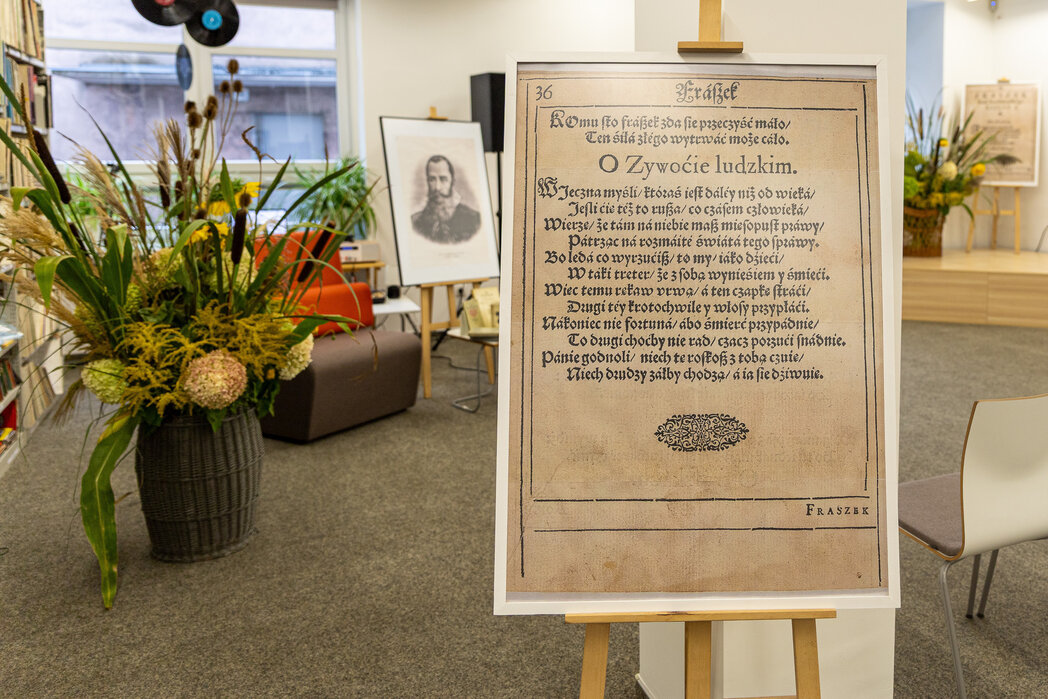 36 Frászek
KOmu sto frászek zda sie przeczyść máło/
Ten siłá złego wytrwáć może cáło.
O Zywoćie ludzkim.
WJeczna myśli/ ktoraś iest dáléy niż od wieká/
Jesli ćie też to rusza/ co czásem człowieká/
Wierze/ że tám ná niebie masz miesopust práwy/
Pátrząc ná rozmáité świátá tego spráwy.
Bo ledá co wyrzućisz/ to my/ iáko dźieći/
W táki treter/ że z sobą wynieśiem y śmieći.
Wiec temu rękaw vrwą/ á ten czapkę stráći/
Drugi téy krotochwile y włosy przypłáći.
Nákoniec nie fortuná/ ábo śmierć przypádnie/
To drugi choćby nie rad/ czácz porzući snádnie.
Pánie godnoli/ niech tę roskosz z tobą czuie/
Niech drudzy záłby chodzą/ á ia sie dziwuie.
FRASZEK